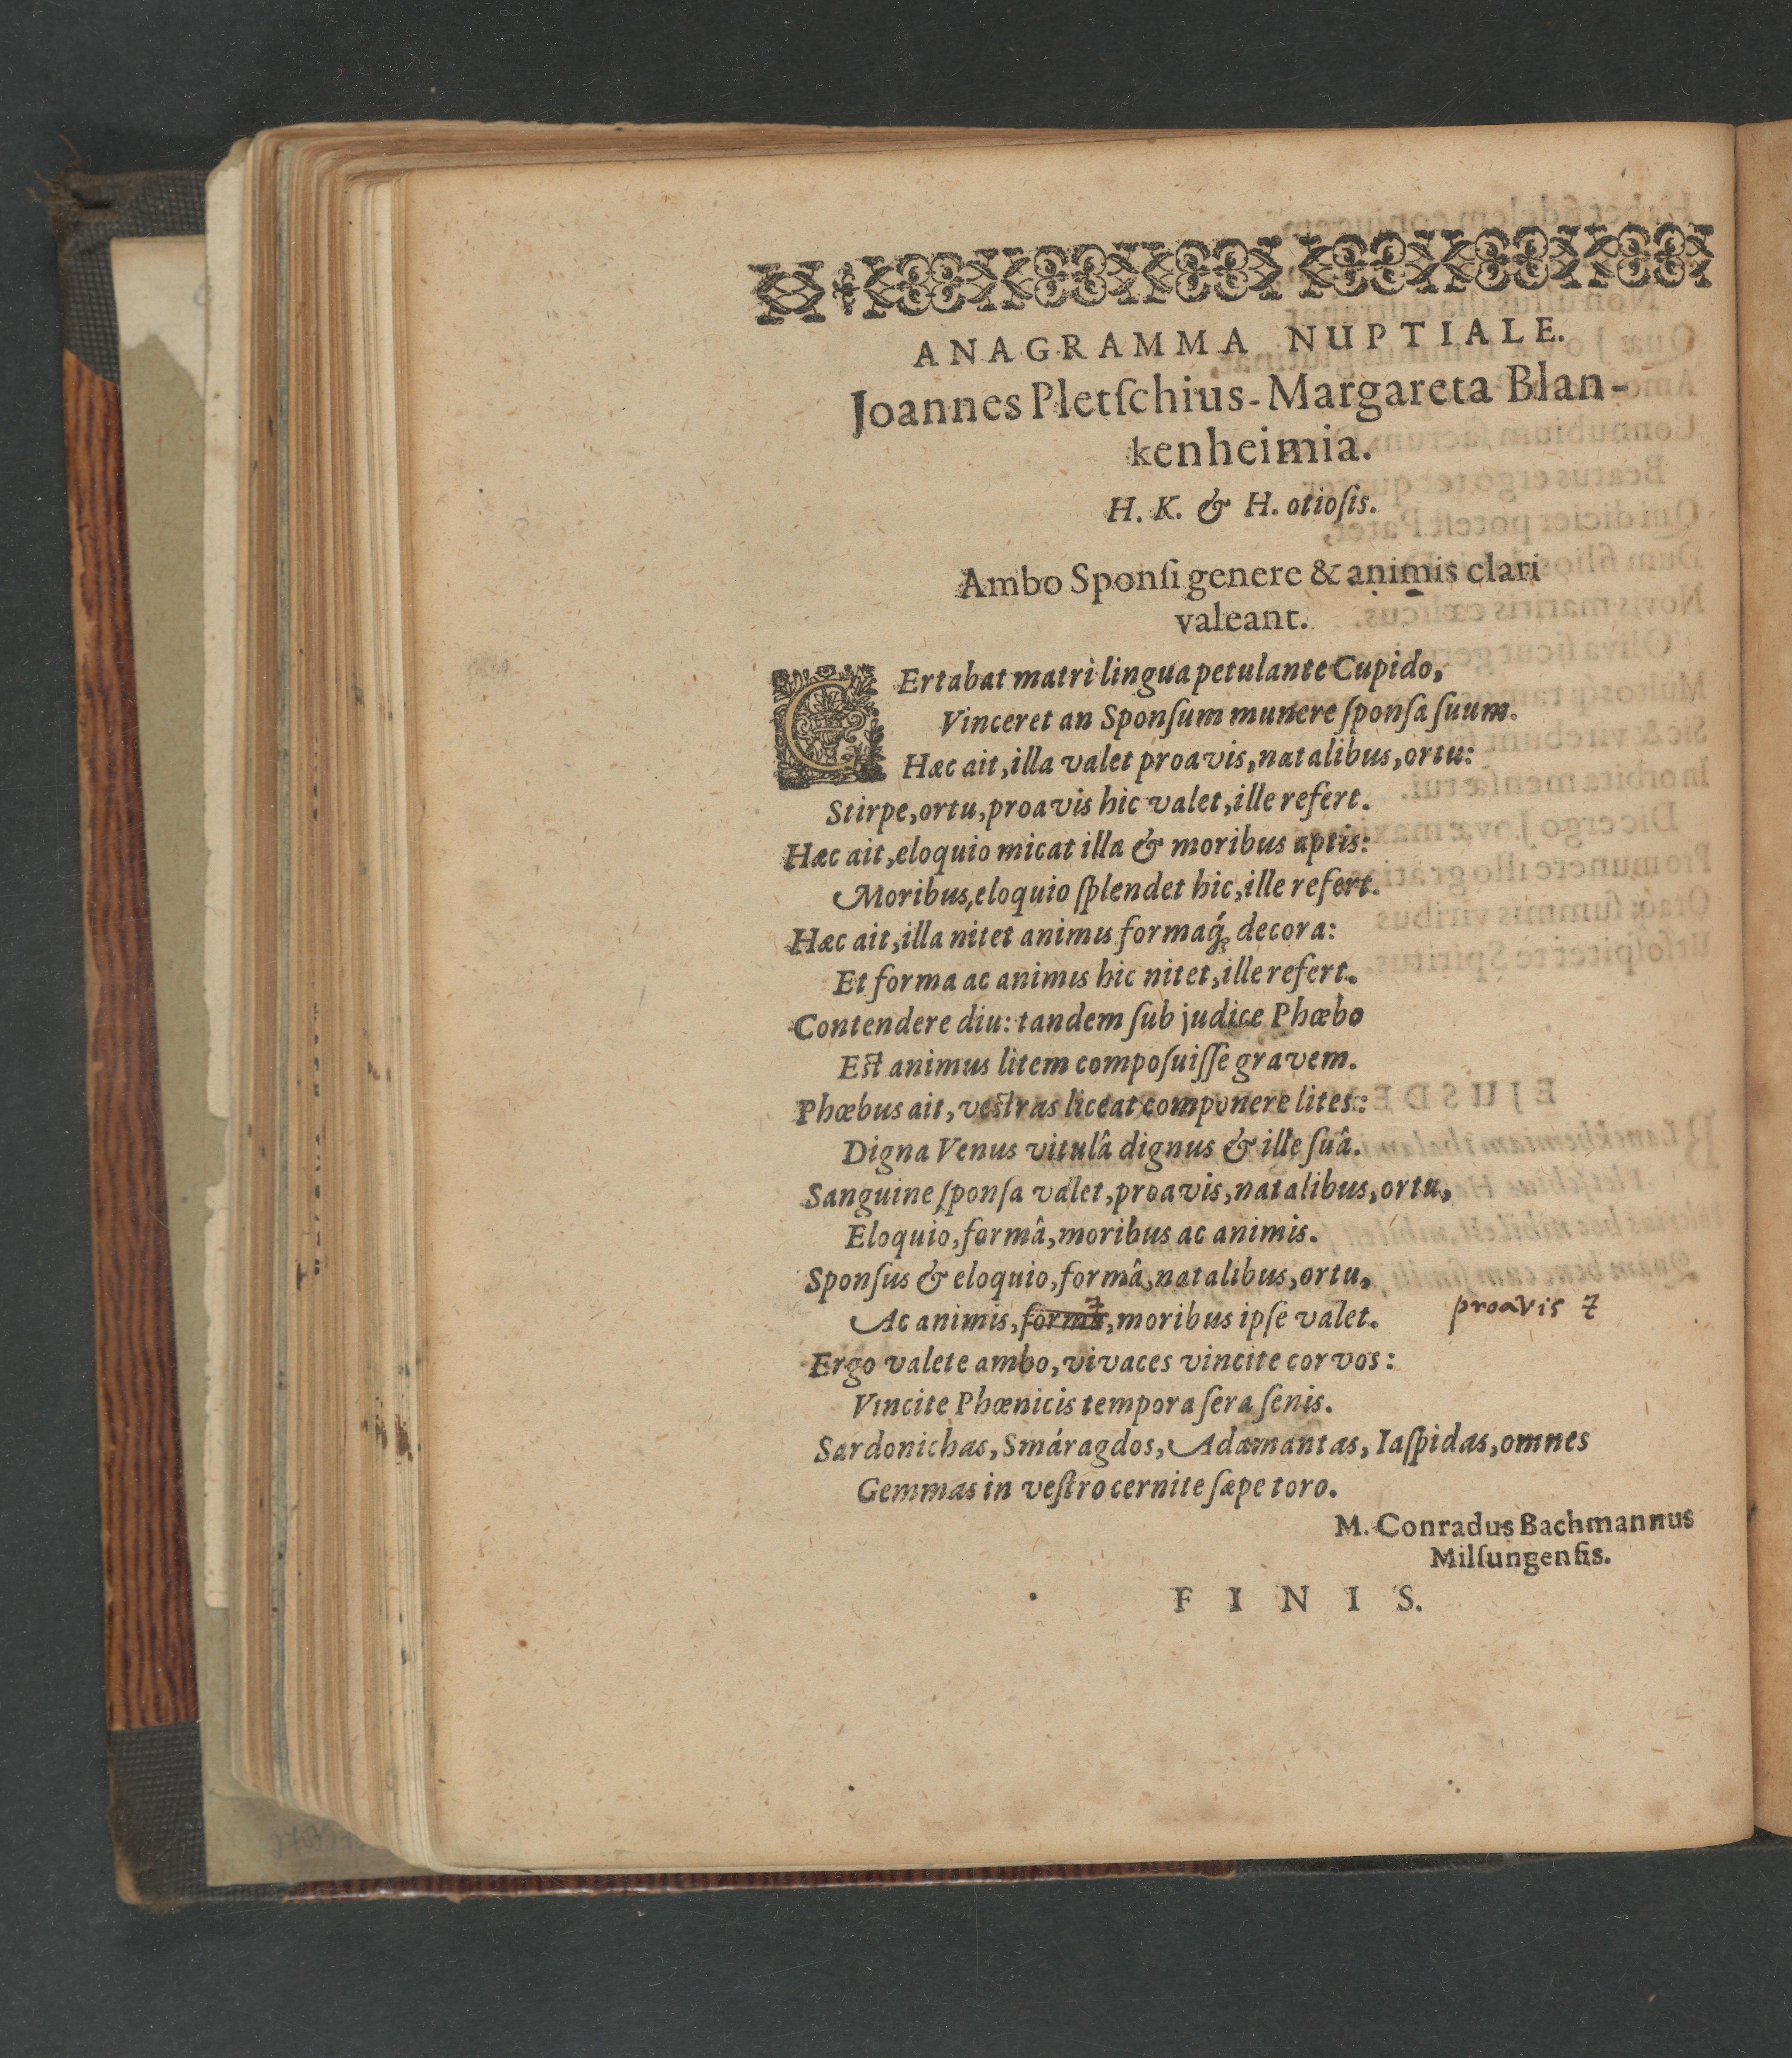 ANAGRAMMA NUPTIALE.
Joannes Pletſchius-Margareta Blan-
kenheimia.
H. K. & H. otioſis.
Ambo Sponſi genere & animis clari
valeant.
CErtabat matri lingua petulante Cupido,
Vinceret an Sponſum munere ſponſa ſuum.
Hæc ait, illa valet proavis, natalibus, ortu:
Stirpe, ortu, proavis hic valet, ille refert.
Hæc ait, eloquio micat illa & moribus aptis:
Moribus, eloquio ſplendet hic, ille refert.
Hæc ait, illa nitet animis formaq́ꝫ decora:
Et forma ac animis hic nitet, ille refert.
Contendere diu: tandem ſub judice Phœbo
Eſt animus litem compoſuiſſe gravem.
Phœbus ait, veſtras liceat componere lites:
Digna Venus vitulâ dignus & ille ſuâ.
Sanguine ſponſa valet, proavis, natalibus, ortu,
Eloquio, formâ, moribus ac animis.
Sponſus & eloquio, formâ, natalibus, ortu,
Ac animis, formâ, moribus ipſe valet. proavis
Ergo valete ambo, vivaces vincite corvos:
Vincite Phœnicis tempora ſera ſenis.
Sardonichas, Smáragdos, Adamantas, Iaſpidas, omnes
Gemmas in veſtro cernite ſæpe toro.
M. Conradus Bachmannus
Milſungenſis.
FINIS.